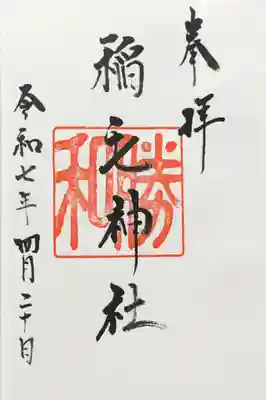 奉拝
稲毛神社
勝和
令和七年四月二十日